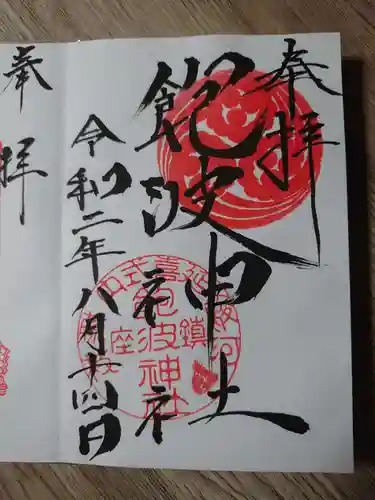 奉拝
飽波神社
令和二年八月十四日
延喜式内
鎮座
飽波神社
奉拝